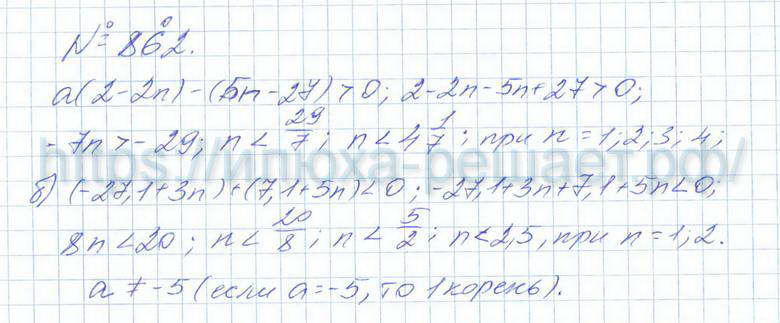 № 862.
а(2-2n)-(5n-27)>0; 2-2n-5n+27>0;
-7n>-29; n<29/7; n<4 1/7; при n=1;2;3;4;
https://илюха-решает.рф/
б) (-27,1+3n)+(7,1+5n)<0; -27,1+3n+7,1+5n<0;
8n<20; n<20/8; n<5/2; n<2,5, при n=1;2.
a≠-5 (если a=-5, то 1 корень).